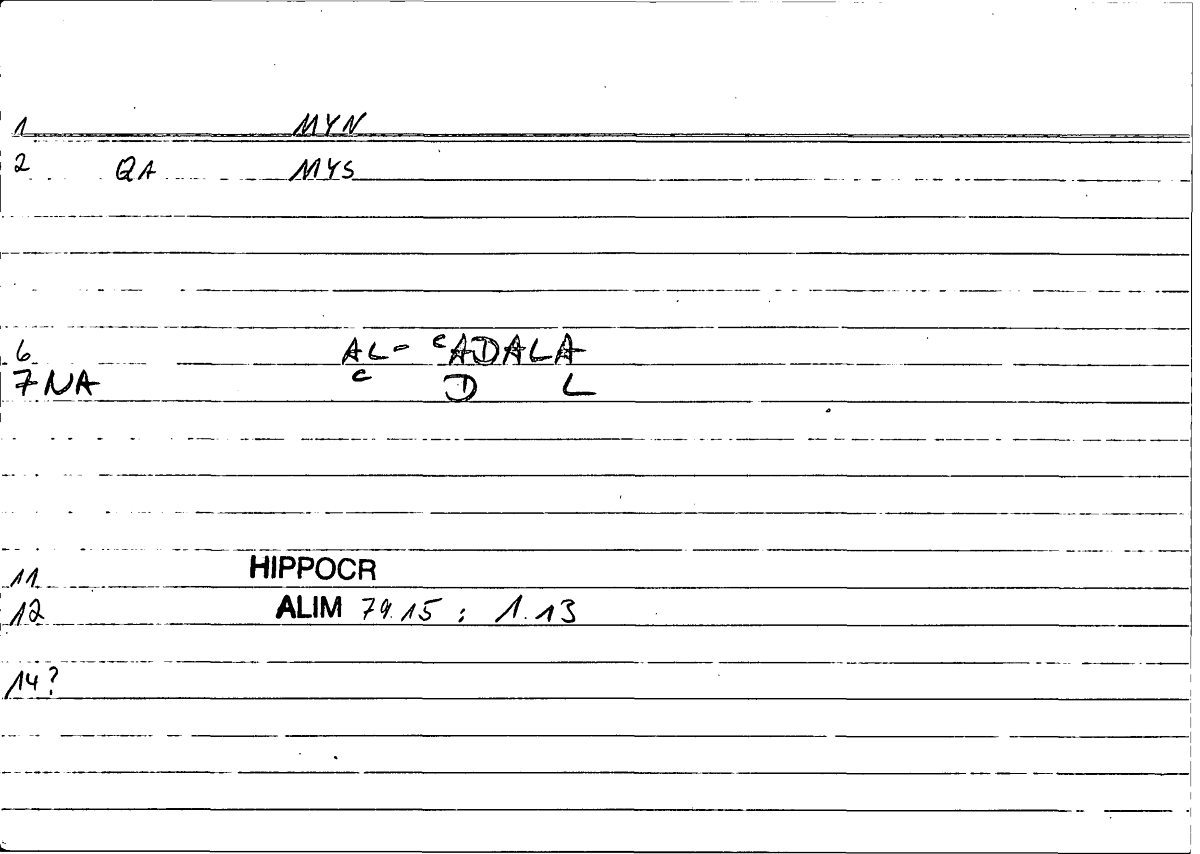 1 MYN
2 QA MYS
6 AL- ᶜADALA
7 NA ᶜ D L
11 HIPPOCR
12 ALIM 79.15 : 1.13
14?